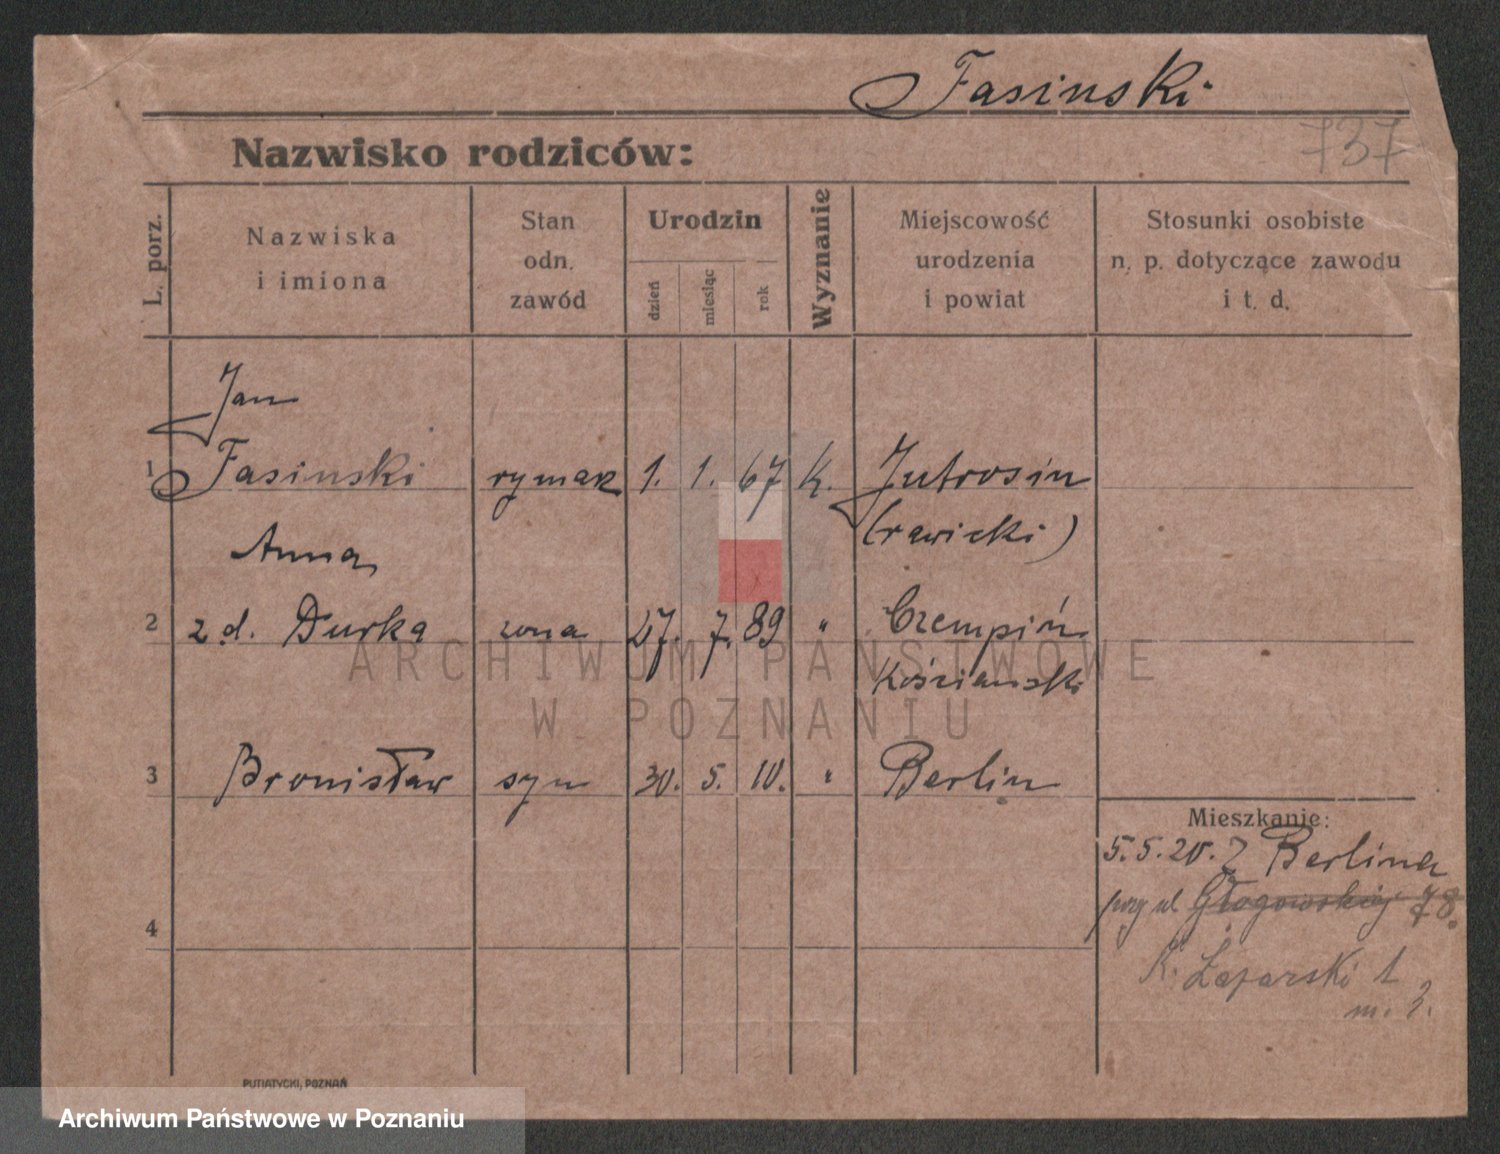 Fasinski
737
Nazwisko rodziców:
L. porz.
Nazwiska
i imiona
Stan
odn.
zawód
Urodzin
dzień
miesiąc
rok
Wyznanie
Miejscowość
urodzenia
i powiat
Stosunki osobiste
n. p. dotyczące zawodu
i t. d.
Jan
1 Fasinski rymarz 1. 1. 67 K. Jutrosin
(rawicki)
Anna
2 z d. Durka żona 27. 7. 89 " Czempiń
Kościański
3 Bronisław syn 30. 5. 10. " Berlin
Mieszkanie:
5.5.20. Z Berlina
przy ul Głogowskiej 78.
4
R. Łazarski 1
m. 3.
ARCHIWUM PAŃSTWOWE
W POZNANIU
PUTIATYCKI, POZNAŃ
Archiwum Państwowe w Poznaniu